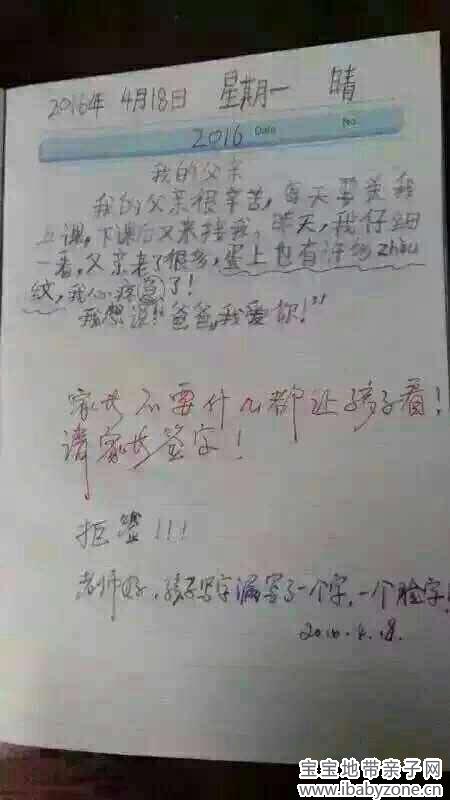 2016年 4月18日 星期一 晴
2016 Date No.
我的父亲
我的父亲很辛苦,每天要送我
上课,下课后又来接我,昨天,我仔细
一看,父亲老了很多,蛋上也有许多zhòu
纹,我心疼急了!
我想说:"爸爸,我爱你!"
家长不要什么都让孩子看!
请家长签字!
拒签!!!
老师好,孩子写字漏写了一个字,一个脸字!
2016.4.18.
宝宝地带亲子网
www.ibabyzone.cn